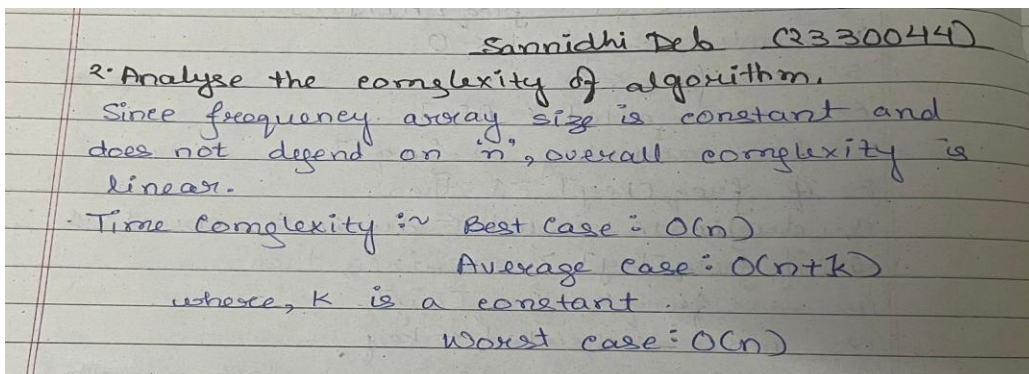 Sannidhi Deb (2330044)
2. Analyse the complexity of algorithm.
Since frequency array size is constant and
does not depend on "n", overall complexity is
linear.
Time Complexity :~ Best Case : O(n)
Average case : O(n+k)
where, k is a constant.
Worst case : O(n)